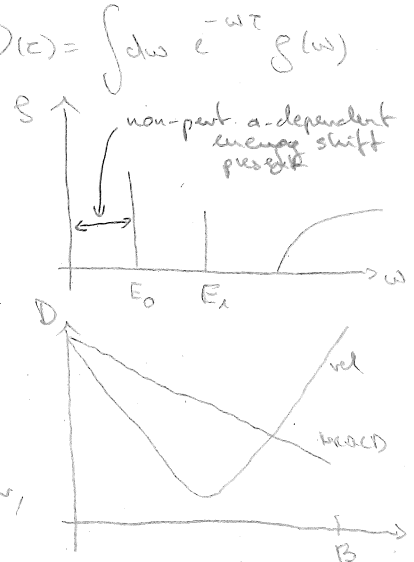 D(τ) = ∫dω e^{-ωτ} ρ(ω)
ρ
non-pert. a-dependent
energy shift
present
E₀
E₁
ω
D
rel
NRQCD
β